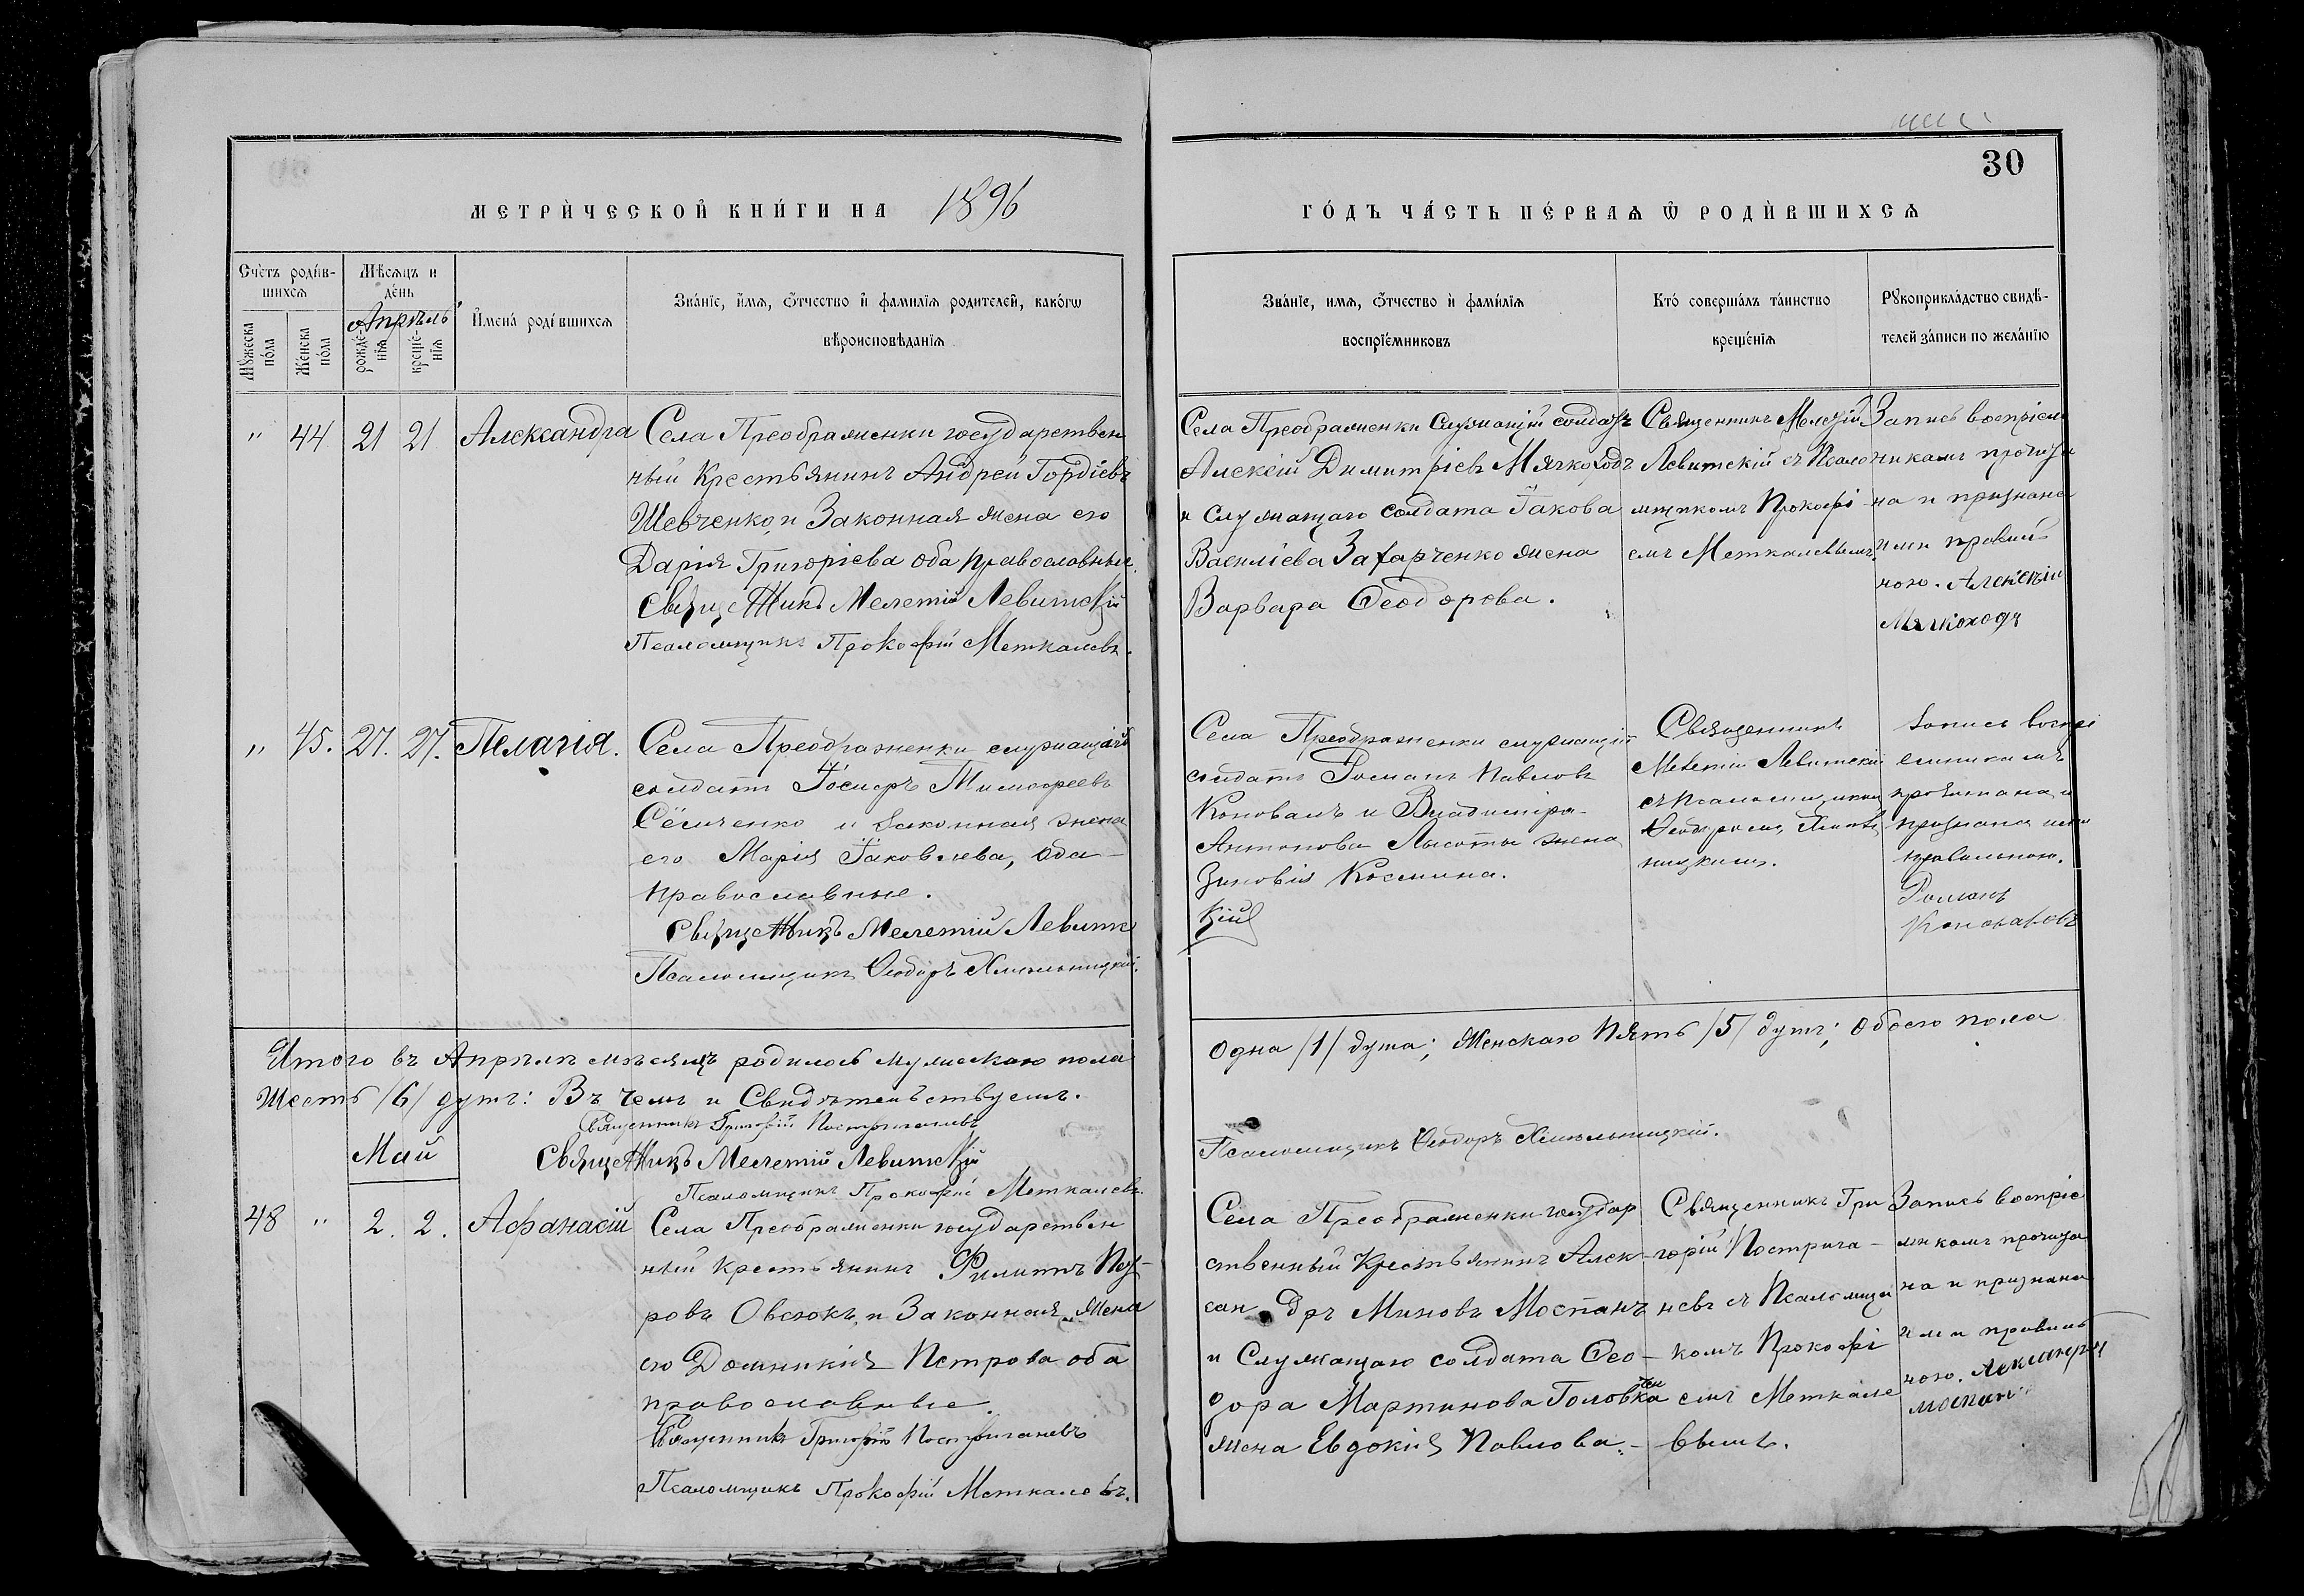 30
МЕТРИЧЕСКОЙ КНИГИ НА 1896
ГОДЪ ЧАСТЬ ПЕРВАЯ Ѿ РОДИВШИХСЯ
Счетъ родив-
шихся
Мужеска пола
Женска пола
Мѣсяцъ и
день
Апрѣль
рожденія
крещенія
Имена родившихся
Званіе, имя, отчество и фамилія родителей, какогѡ
вѣроисповѣданія
Званіе, имя, отчество и фамилія
воспріемниковъ
Кто совершалъ таинство
крещенія
Рукоприкладство свидѣ-
телей записи по желанію
" 44 21 21 Александра
Села Преображенки государствен
ный Крестьянинъ Андрей Гордіевъ
Шевченко, и Законная жена его
Дарія Григоріева оба православные.
Священникъ Мелетій Левитскій
Псаломщикъ Прокофій Меткалевъ.
Села Преображенки Служащій солдатъ
Алексій Димитріевъ Мячкоходъ
и Служащаго солдата Іакова
Василіева Захарченко жена
Варвара Ѳеодорова.
Священникъ Мелетій
Левитскій съ Псало
мщикомъ Прокофі
емъ Меткалевымъ.
Запись воспріем
никамъ прочита
на и признана
ими правиль
ною. Алексій
Мячкоходъ
" 45. 27. 27. Пелагія.
Села Преображенки служащій
солдатъ Іосифъ Тимофеевъ
Сёмченко и законная жена
его Марія Іаковлева, оба
православные.
Священникъ Мелетій Левитс
Псаломщикъ Ѳеодоръ Хмельницкій.
Села Преображенки служащій
солдатъ Романъ Павловъ
Коновалъ и Владиміра
Антонова Лысоты жена
Зиновія Космина.
кій
Священникъ
Мелетій Левитскій
съ Псаломщикомъ
Ѳеодоромъ Хмель
ницкимъ.
Запись воспрі
емникамъ
прочитана и
признана ими
правильною.
Романъ
Итого въ Апрѣлѣ мѣсяцѣ родилось мужескаго пола
Одна /1/ душа; Женскаго Пять /5/ душъ; Обоего пола
Шесть /6/ душъ: Въ чемъ и Свидѣтельствуемъ.
Священникъ Григорій Постригачевъ
Священникъ Мелетій Левитскій
Псаломщикъ Прокофій Меткалевъ.
Псаломщикъ Ѳеодоръ Хмельницкій.
Май
48 " 2. 2. Афанасій
Села Преображенки государствен
ный крестьянинъ Филиппъ Пет-
ровъ Овсюкъ, и Законная жена
его Домникія Петрова оба
православные.
Священникъ Григорій Постригачевъ
Псаломщикъ Прокофій Меткалевъ.
Села Преображенки государ
ственный Крестьянинъ Алек-
сан дръ Миновъ Моспанъ
и Служащаго солдата Ѳео-
дора Мартинова Головченка
жена Евдокія Павлова.
Священникъ Гри
горій Пострига-
чевъ съ Псаломщи
комъ Прокофі
емъ Меткале
вымъ.
Запись воспріе
мникамъ прочита
на и признана
ими правиль
ною. Александръ
моспанъ